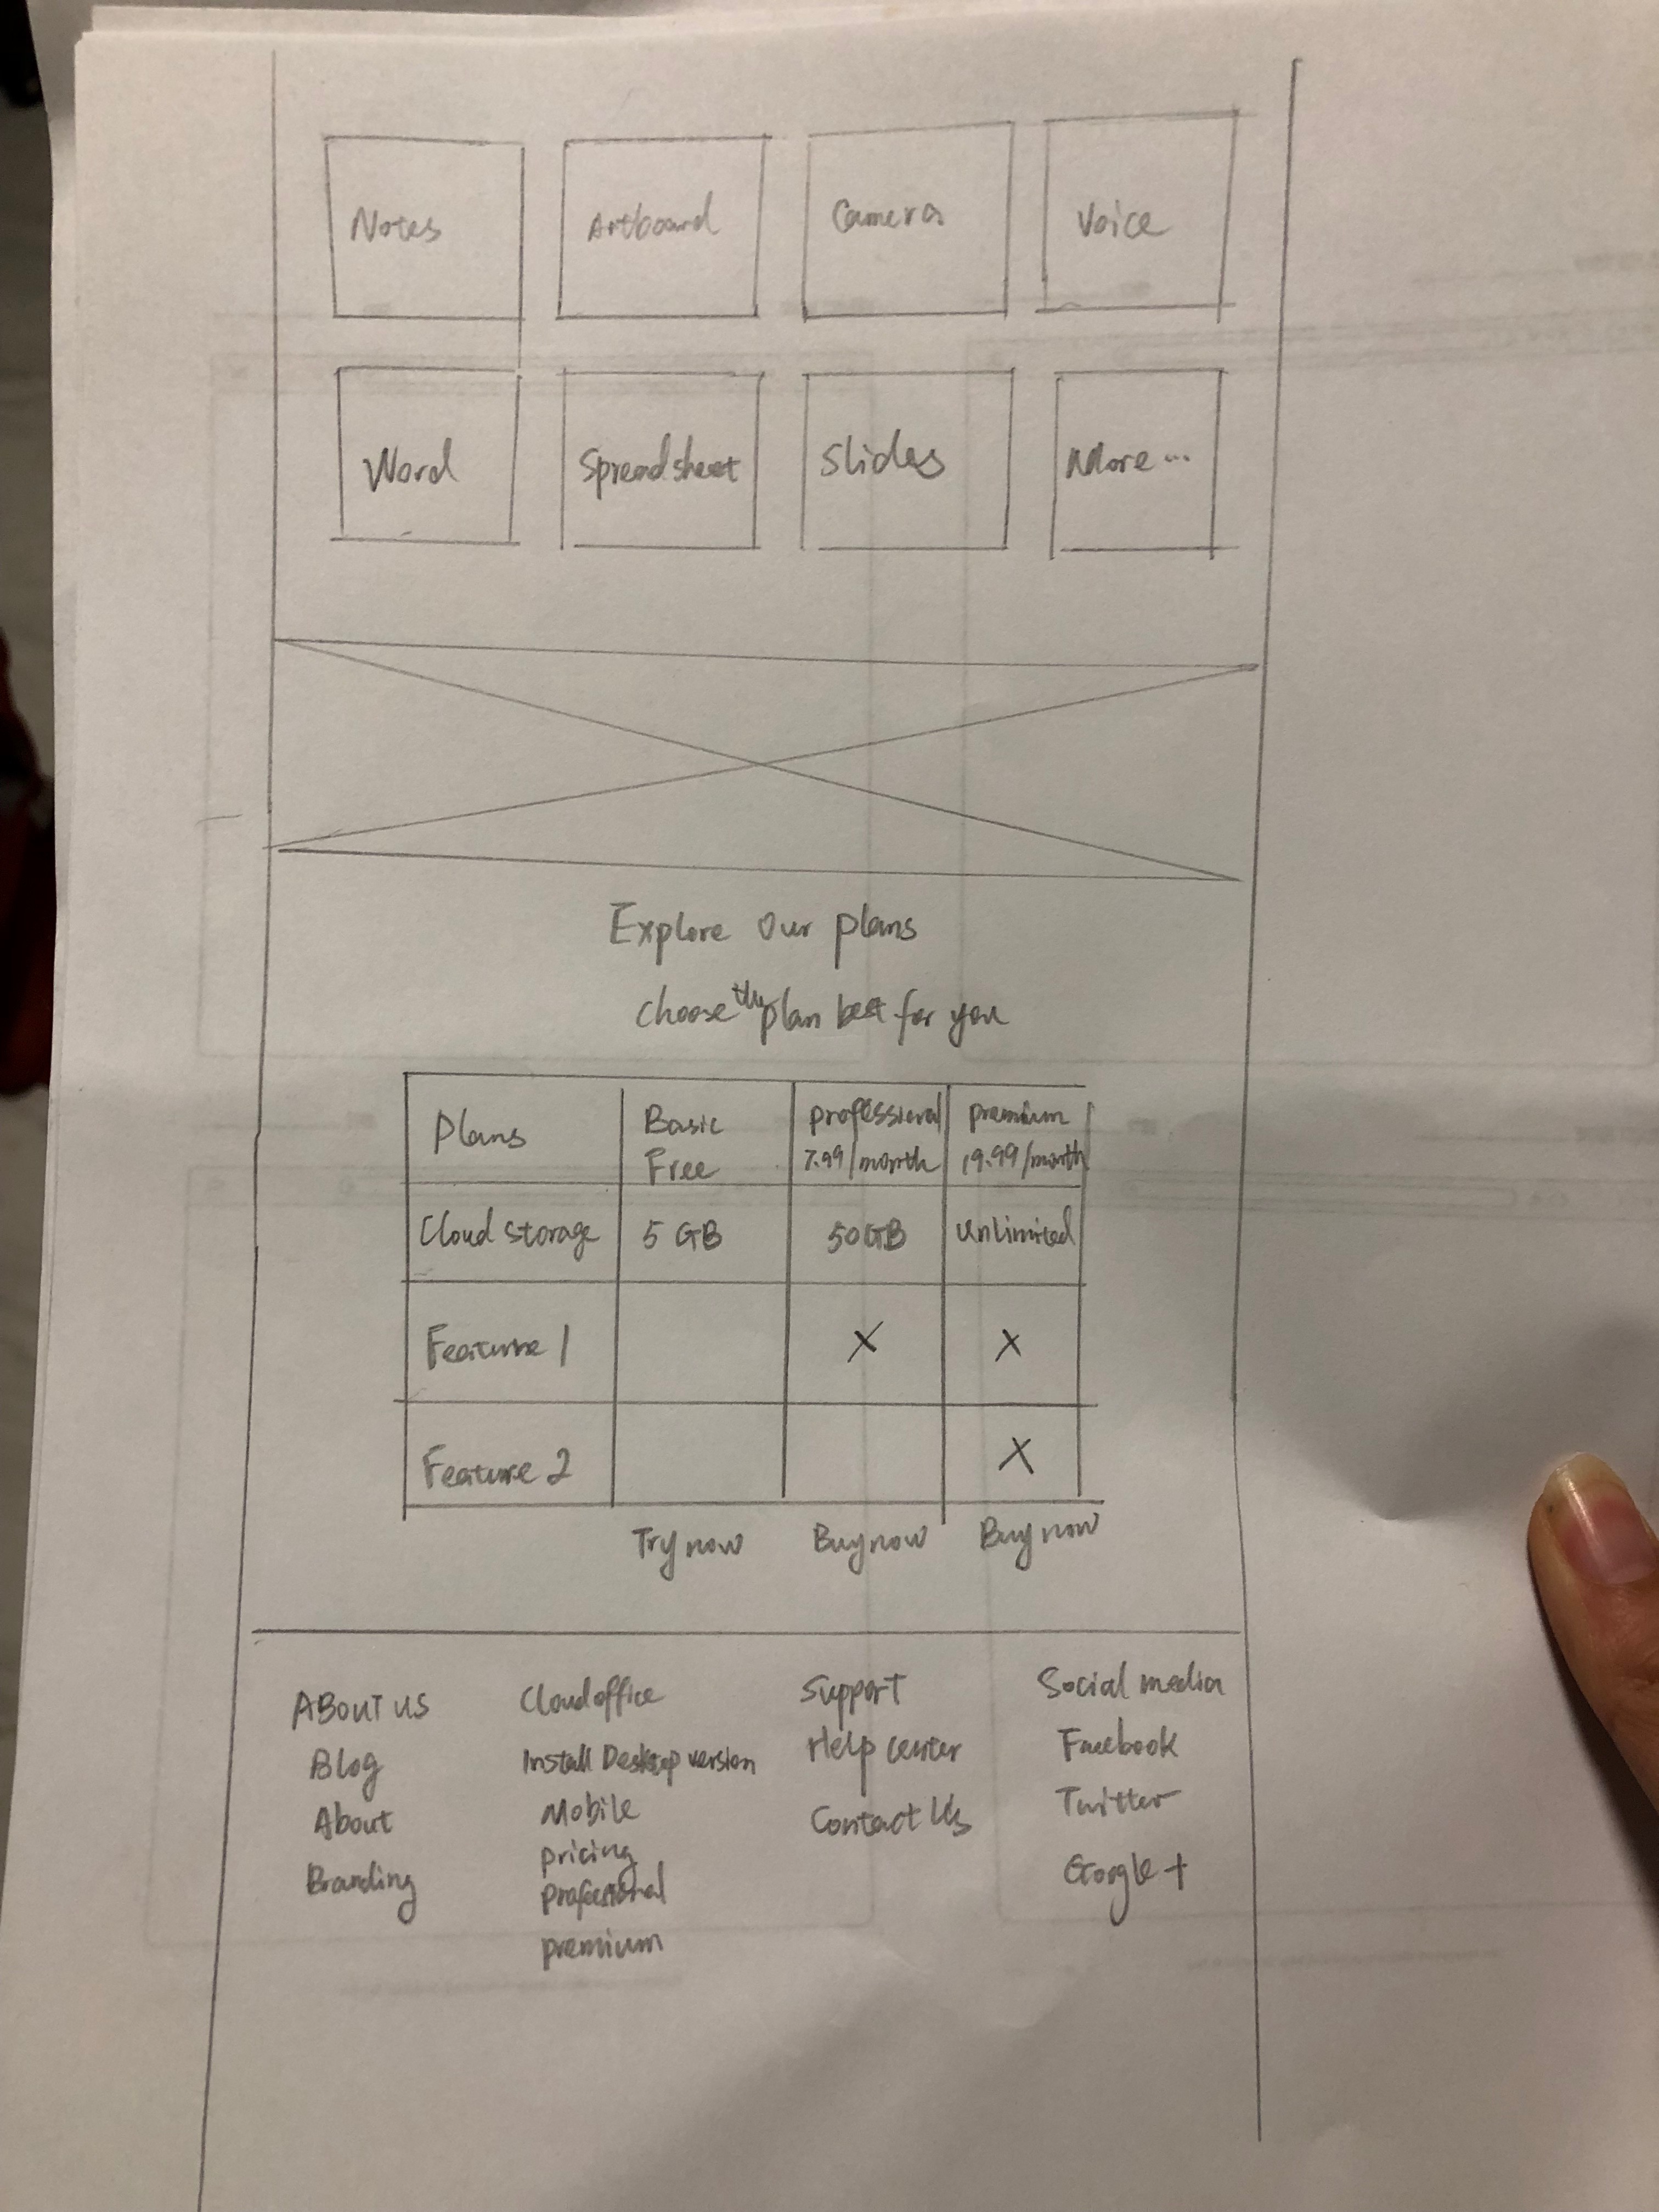 Notes Artboard Camera Voice
Word Spreadsheet Slides More...
Explore Our plans
choose the plan best for you
Plans Basic Free professional 7.99/month premium 19.99/month
Cloud storage 5 GB 50GB Unlimited
Feature 1 X X
Feature 2 X
Try now Buy now Buy now
ABout us
Blog
About
Branding
Cloud office
Install Desktop version
Mobile
pricing
professional
premium
Support
Help center
Contact Us
Social media
Facebook
Twitter
Google +